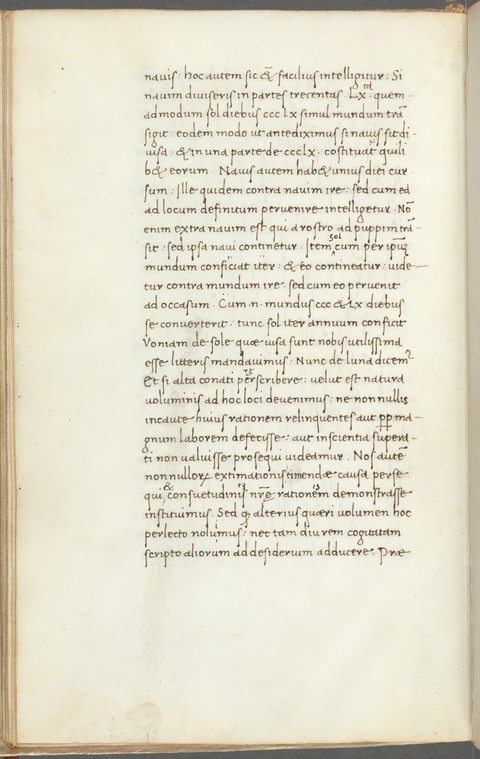 nauis: hoc autem sic & facilius intelligitur: Si
nauim diuiseris in partes trecentas · Lx · quem
admodum sol diebus ccc Lx simul mundum trā
sigit: eodem modo ut antediximus si nauis sit di-
uisa: & in una parte de cccLx · cōstituat quili
b& eorum · Nauis autem hab& unius diei cur
sum: Ille quidem contra nauim ire: sed cum ea
ad locum definitum peruenire intelligetur · Nō
enim extra nauim est qui a rostro ad puppim trā-
sit: sed ipsa naui continetur · Item sol cum per ipsius
mundum conficiat iter: & eo contineatur: uide-
tur contra mundum ire · sed cum eo peruenit
ad occasum · Cum · n · mundus ccc & Lx diebus
se conuerterit · tunc sol iter annuum conficit
Voniam de sole quæ uisa sunt nobis utilissima
esse litteris mandauimus: Nunc de luna dicem⁹
Et si alta conati perscribere: uelut est natura
uoluminis ad hoc loci deuenimus: ne non nullis
incaute huius rationem relinquentes aut ꝓꝑ ma-
gnum laborem defecisse: aut inscientia supera-
ti non ualuisse prosequi uideamur · Nos autē
non nulloꝝ extimationis timendæ causa perse
qui & consuetudinis nr̄ę rationem demonstrasse
instituimus · Sed alterius quæri uolumen hoc
perlecto nolumus: nec tam diu rem cogitatam
scripto aliorum ad desiderium adducere · Præ